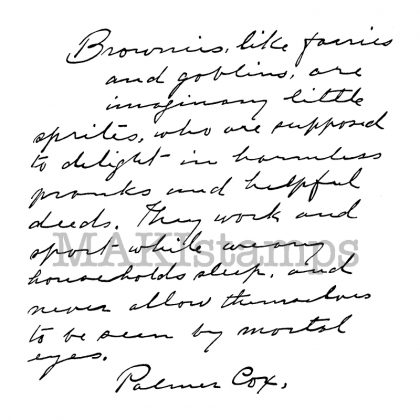 Brownies, like fairies
and goblins, are
imaginary little
sprites, who are supposed
to delight in harmless
pranks and helpful
deeds. They work and
sport while weary
households sleep, and
never allow themselves
to be seen by mortal
eyes.
Palmer Cox.
MAKIstamps